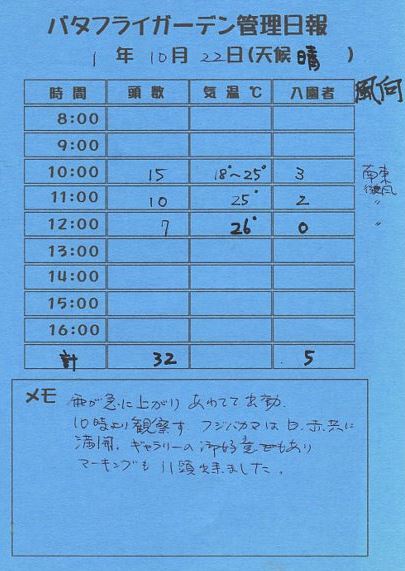 バタフライガーデン管理日報
1年10月22日(天候 晴 )
時間 頭数 気温℃ 入園者 風向
8:00
9:00
10:00 15 18°~25° 3 南東微風
11:00 10 25° 2 〃
12:00 7 26° 0 〃
13:00
14:00
15:00
16:00
計 32 5
メモ 雨が急に上がり あわてて出勤.
10時より観察す フジバカマは白、赤共に
満開. ギャラリーの御好意もあり
マーキングも11頭出来ました。